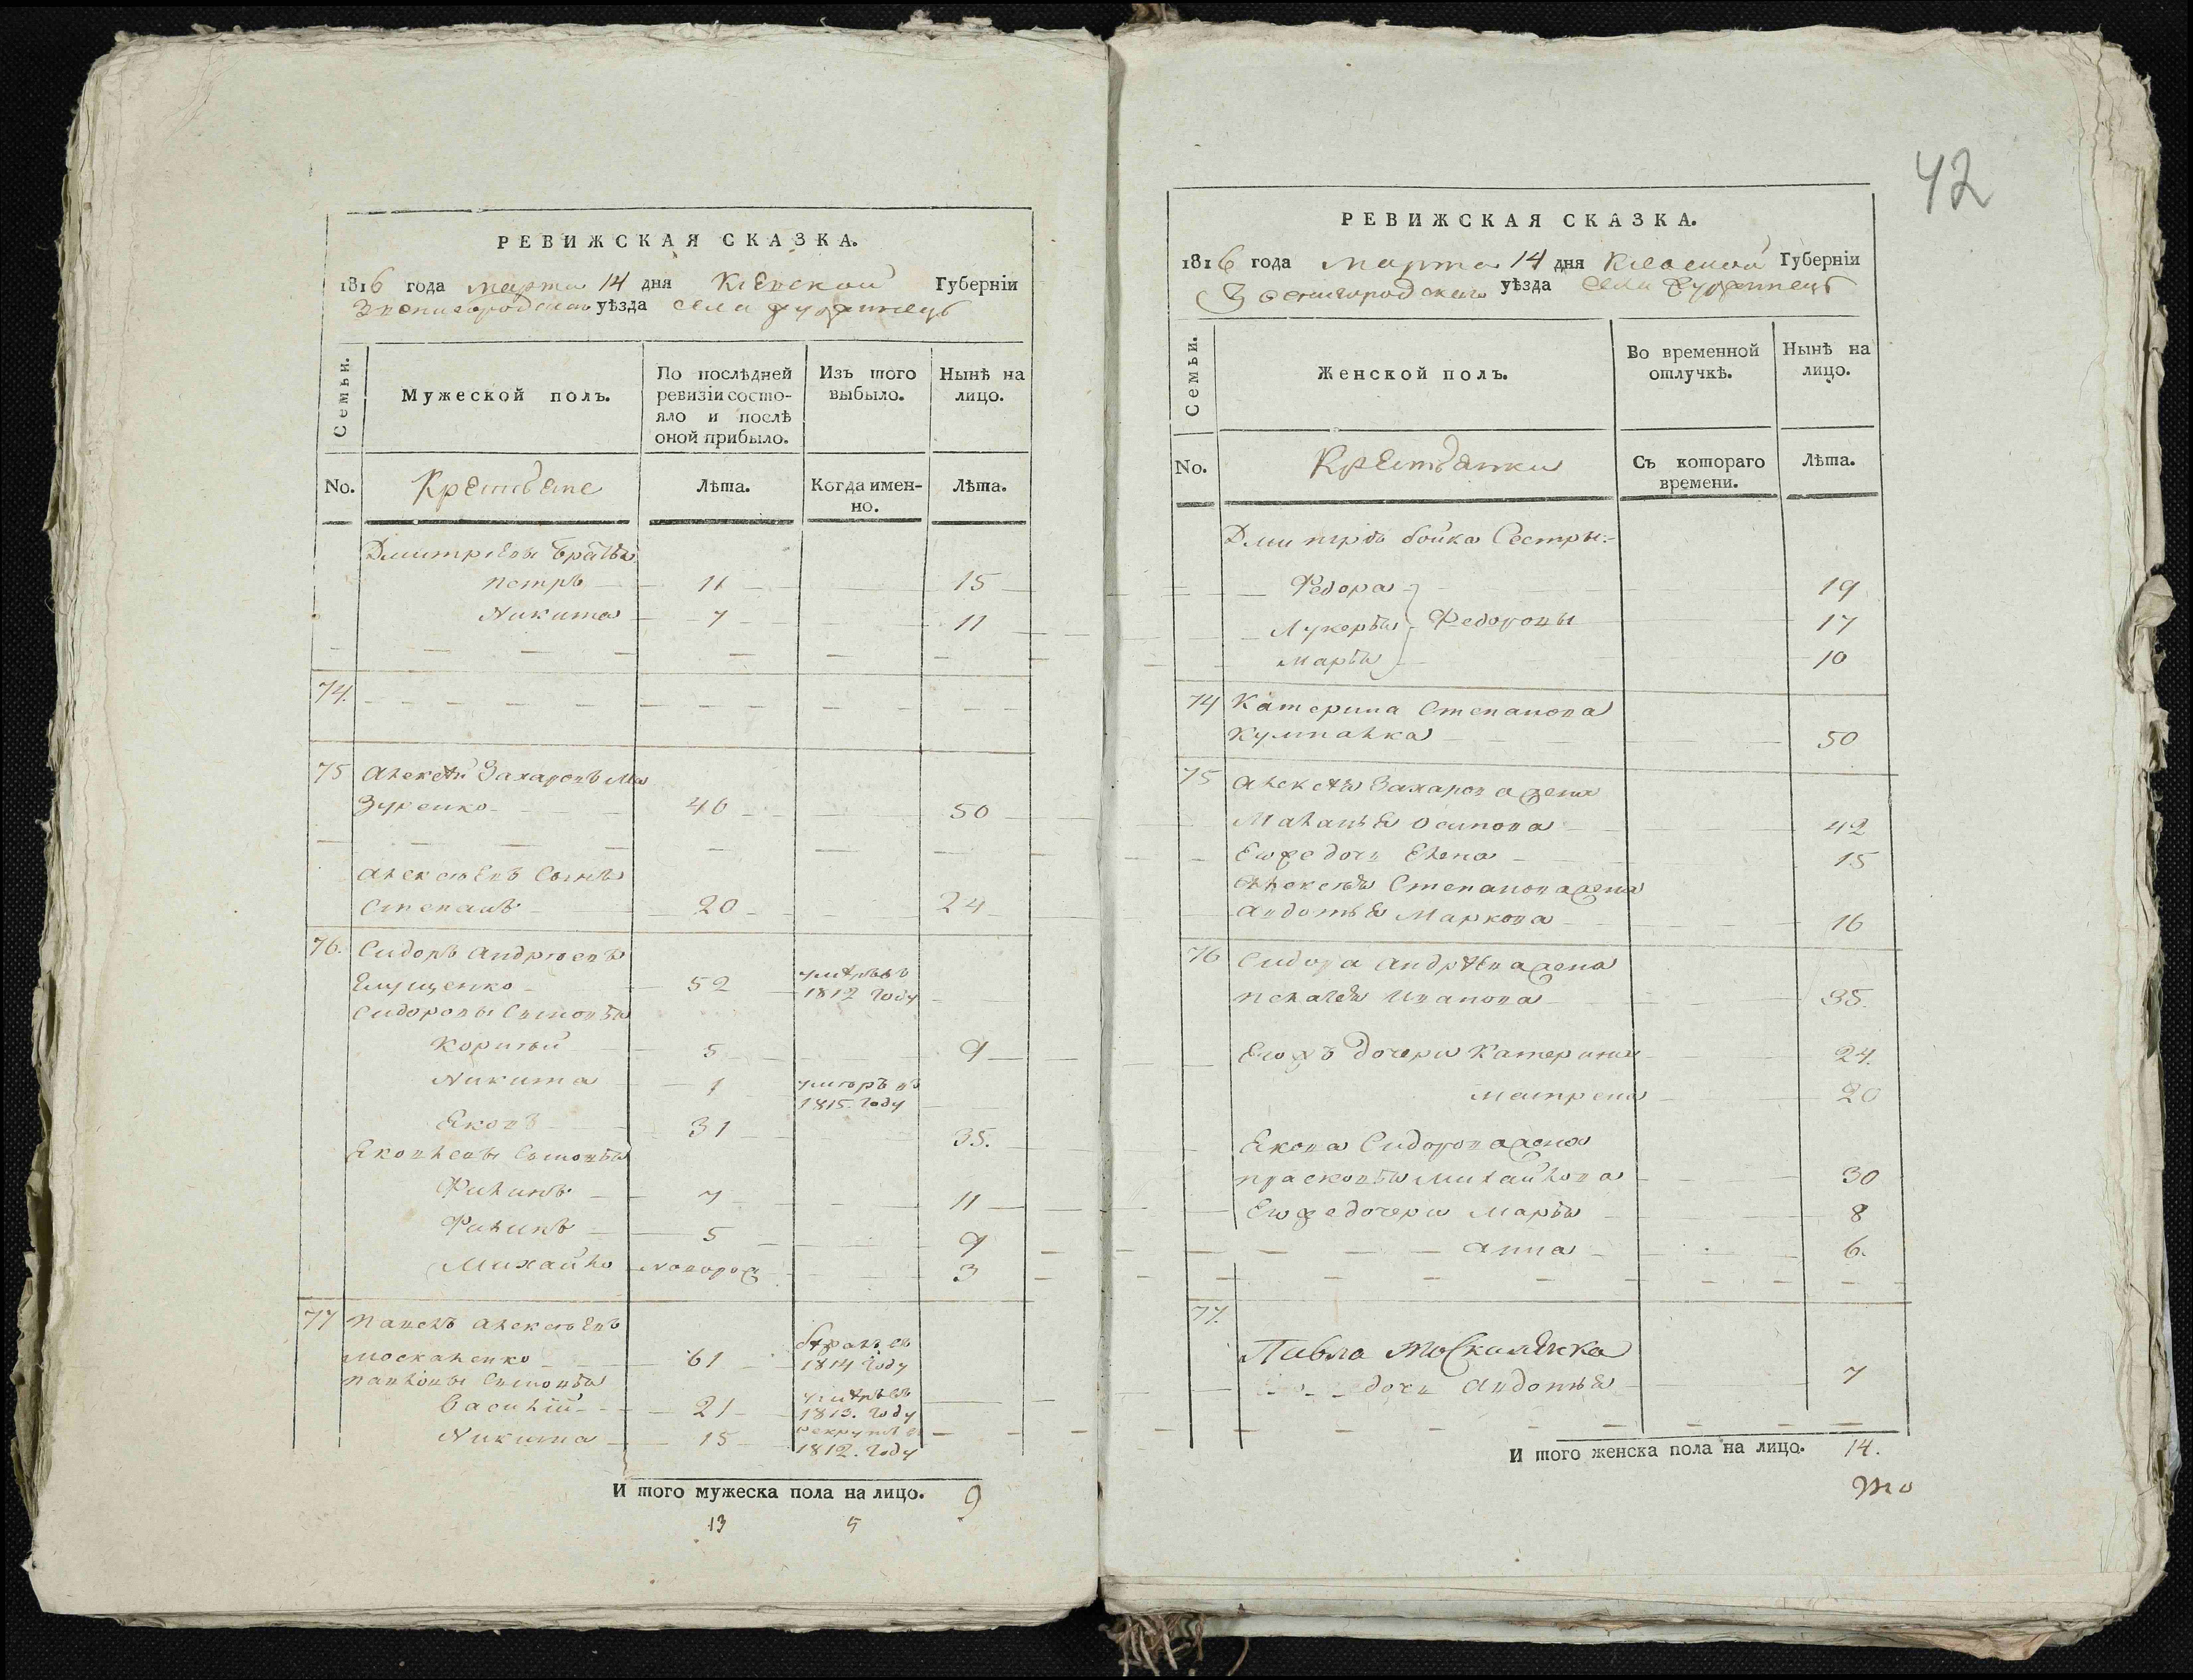 РЕВИЖСКАЯ СКАЗКА.
1816 года марта 14 дня Киевской Губерніи
Звенигородскаго уѣзда села
Семьи.
Мужеской полъ.
По послѣдней ревизіи состояло и послѣ оной прибыло.
Изъ того выбыло.
Нынѣ на лицо.
No.
Крестьяне
Лѣта.
Когда именно.
Лѣта.
Дмитріевы братья
Петръ 11 15
Никита 7 11
74.
75 Алексѣй Захаровъ Ма
зуренко 46 50
Алексѣевъ сынъ
Степанъ 20 24
76. Сидоръ Андрѣевъ
52 умѣръ въ 1812 году
Сидоровы сыновья
Корнѣй 5 9
Никита 1 умѣръ въ 1815 году
Яковъ 31 35.
Яковлевы сыновья
Филипъ 7 11
Филипъ 5 9
Михайло новорож 3
77 Павелъ Алексѣевъ
Москаленко 61 1814 году
Павловы сыновья
Василій 21 умѣръ въ 1813. году
Никита 15 рекрутъ в 1812. году
И того мужеска пола на лицо. 9
13 5
42
РЕВИЖСКАЯ СКАЗКА.
1816 года марта 14 дня Кіевской Губерніи
Звенигородскаго уѣзда села
Семьи.
Женской полъ.
Во временной отлучкѣ.
Нынѣ на лицо.
No.
Крестьянки
Съ котораго времени.
Лѣта.
Дмитрія бойка Сестры:
Федора 19
Лукерья Федоровы 17
Марья 10
74 Катерина Степанова
50
75 Алексѣя Захарова жена
Маланья Осипова 42
Его же дочь Елена 15
Алексѣя Степанова жена
Авдотья Маркова 16
76 Сидора Андрѣева жена
Пелагея Иванова 35.
Его жъ дочери Катерина 24.
Матрена 20
Якова Сидорова жена
Прасковья Михайлова 30
Его же дочери Марья 8
Анна 6.
77.
Павла Москаленка
дочь Авдотья 7
И того женска пола на лицо. 14.